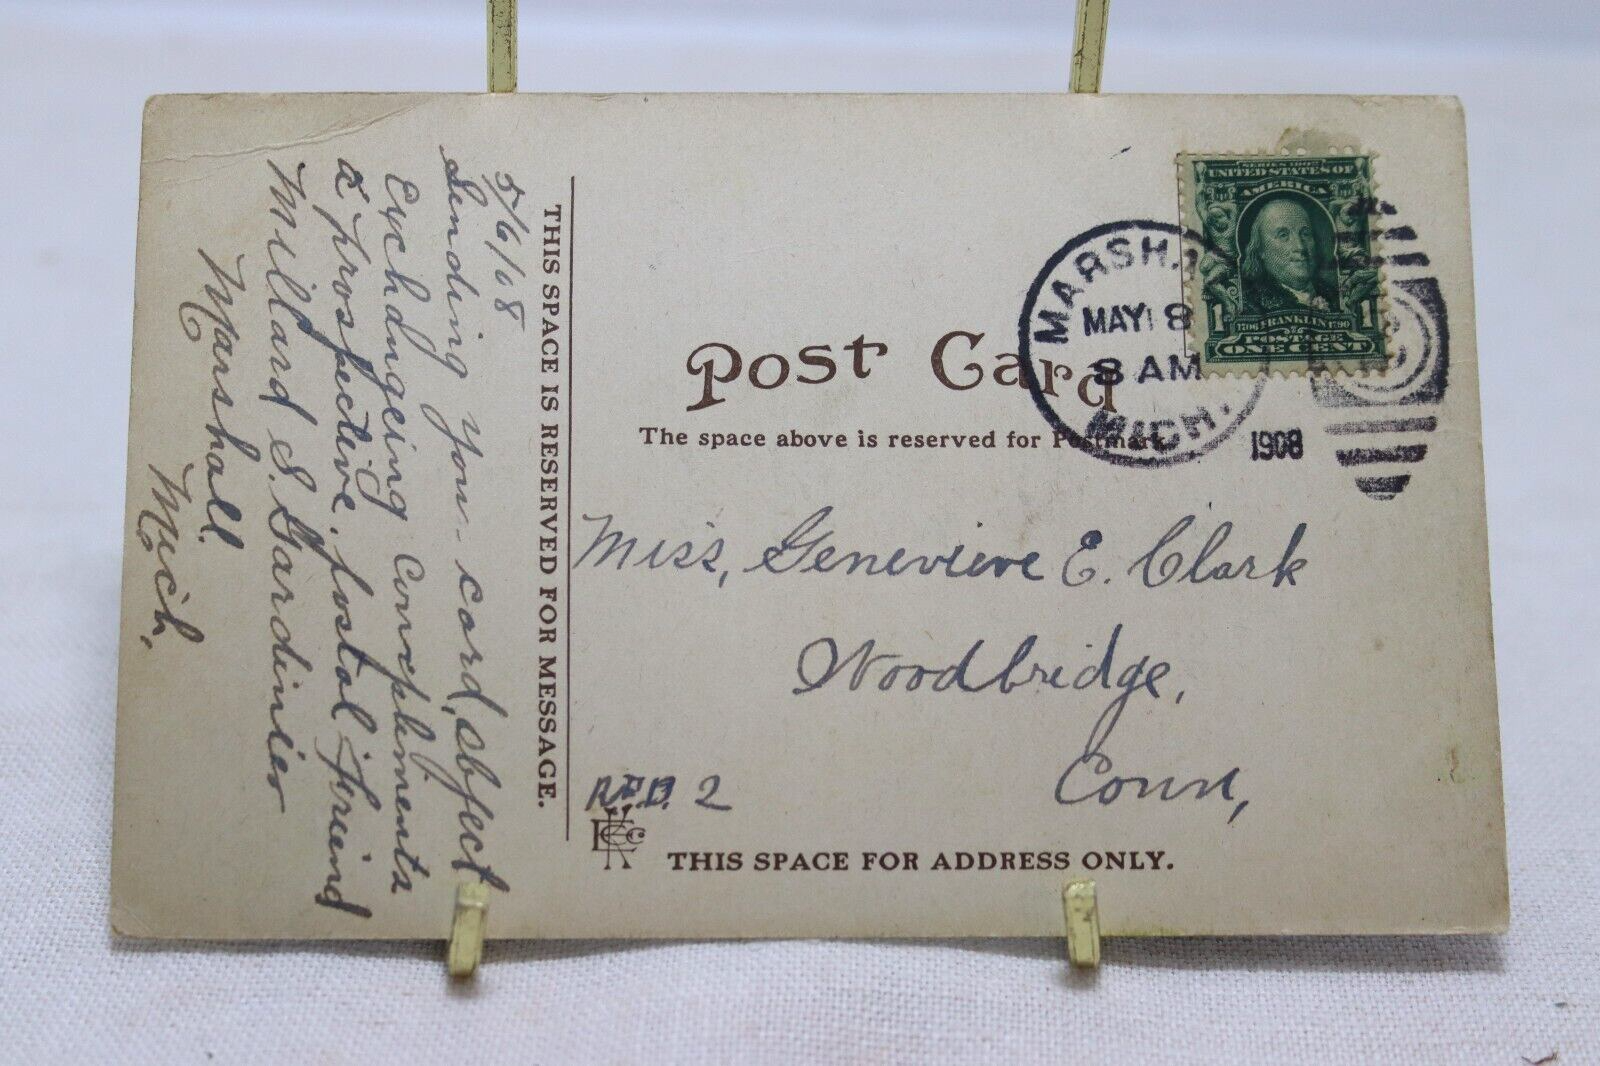 5/6/08
Sending you card, object
Exchangeing Complements
a prospective, postal friend
Millard S. Gardinier
Marshall
Mich.
THIS SPACE IS RESERVED FOR MESSAGE.
SERIES 1902
UNITED STATES OF
AMERICA
1706 FRANKLIN 1790
1 1
POSTAGE
ONE CENT
MARSHA
MAY 8
8 AM
MICH.
1908
Post Card
The space above is reserved for Postmark.
Miss, Genevieve E. Clark
Woodbridge,
Conn,
R.F.D. 2
THIS SPACE FOR ADDRESS ONLY.